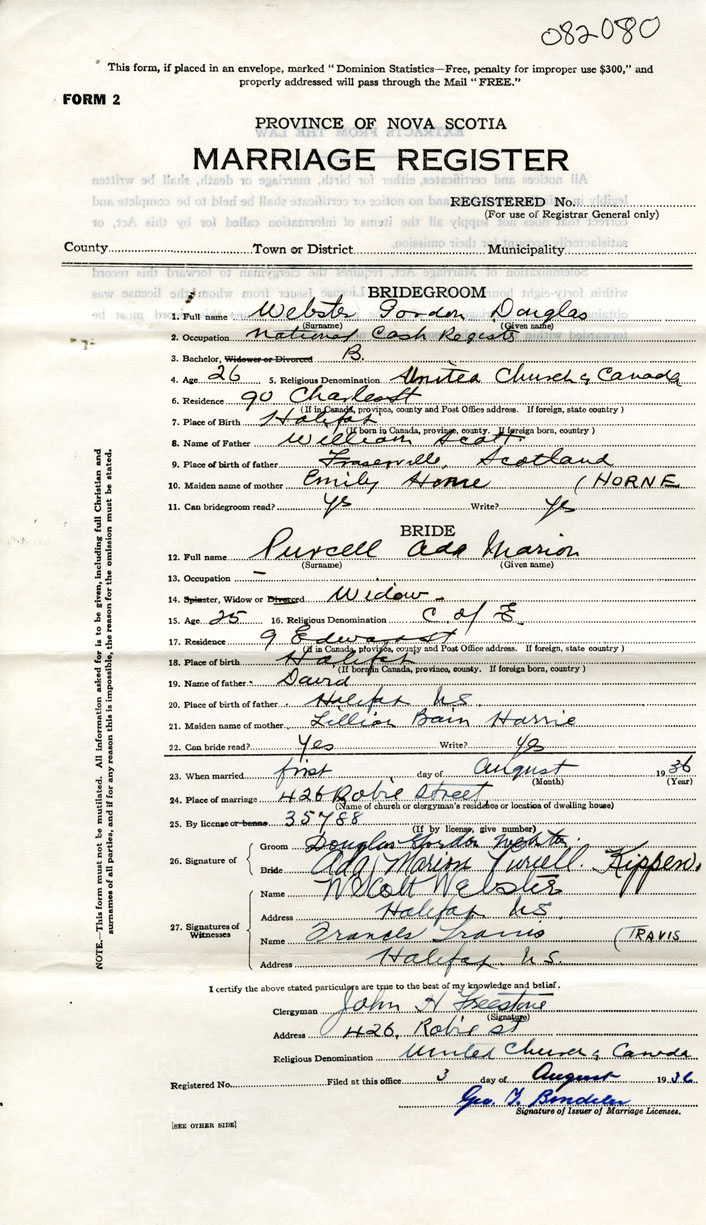 082080
This form, if placed in an envelope, marked "Dominion Statistics—Free, penalty for improper use $300," and
properly addressed will pass through the Mail "FREE."
FORM 2
PROVINCE OF NOVA SCOTIA
MARRIAGE REGISTER
REGISTERED No.
(For use of Registrar General only)
County Town or District Municipality
BRIDEGROOM
1. Full name Webster Gordon Douglas
(Surname) (Given name)
2. Occupation National Cash Register
3. Bachelor, Widower or Divorced B.
4. Age 26 5. Religious Denomination United Church of Canada
6. Residence 90 Charles St
(If in Canada, province, county and Post Office address. If foreign, state country)
7. Place of Birth Halifax
(If born in Canada, province, county. If foreign born, country)
8. Name of Father William Scott
9. Place of birth of father Scotland
10. Maiden name of mother Emily Horne (HORNE
11. Can bridegroom read? Yes Write? Yes
BRIDE
12. Full name Purcell Ada Marion
(Surname) (Given name)
13. Occupation —
14. Spinster, Widow or Divorced Widow
15. Age 25 16. Religious Denomination C. of E.
17. Residence 9 Edward St
(If in Canada, province, county and Post Office address. If foreign, state country)
18. Place of birth Halifax
(If born in Canada, province, county. If foreign born, country)
19. Name of father David
20. Place of birth of father Halifax NS
21. Maiden name of mother Lillian Bain Harrie
22. Can bride read? Yes Write? Yes
23. When married first day of August 1936
(Month) (Year)
24. Place of marriage 426 Robie Street
(Name of church or clergyman's residence or location of dwelling house)
25. By license or banns 35788
(If by license, give number)
26. Signature of Groom Douglas Gordon Webster
Bride Ada Marion Purcell. Kippen.
27. Signatures of Witnesses
Name W Scott Webster
Address Halifax NS
Name Frances Travis (TRAVIS
Address Halifax N.S.
I certify the above stated particulars are true to the best of my knowledge and belief.
Clergyman John H Freestone
(Signature)
Address 426, Robie St
Religious Denomination United Church of Canada
Registered No. Filed at this office 3 day of August 1936
Geo. T.
Signature of Issuer of Marriage Licenses.
[SEE OTHER SIDE]
NOTE.—This form must not be mutilated. All information asked for is to be given, including full Christian and
surnames of all parties, and if for any reason this is impossible, the reason for the omission must be stated.